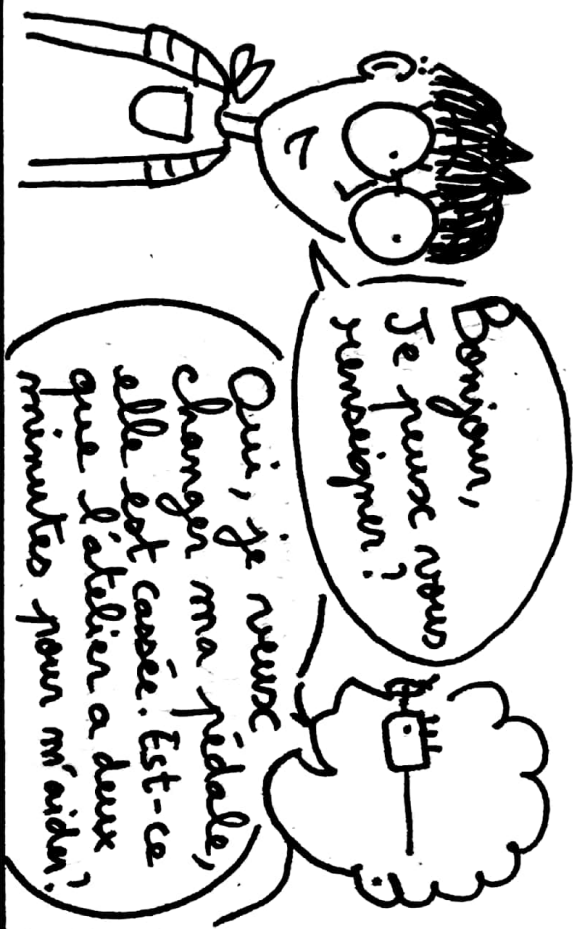 Bonjour,
Je peux vous
renseigner?
Oui, je veux
changer ma pédale,
elle est cassée. Est-ce
que l'atelier a deux
minutes pour m'aider?